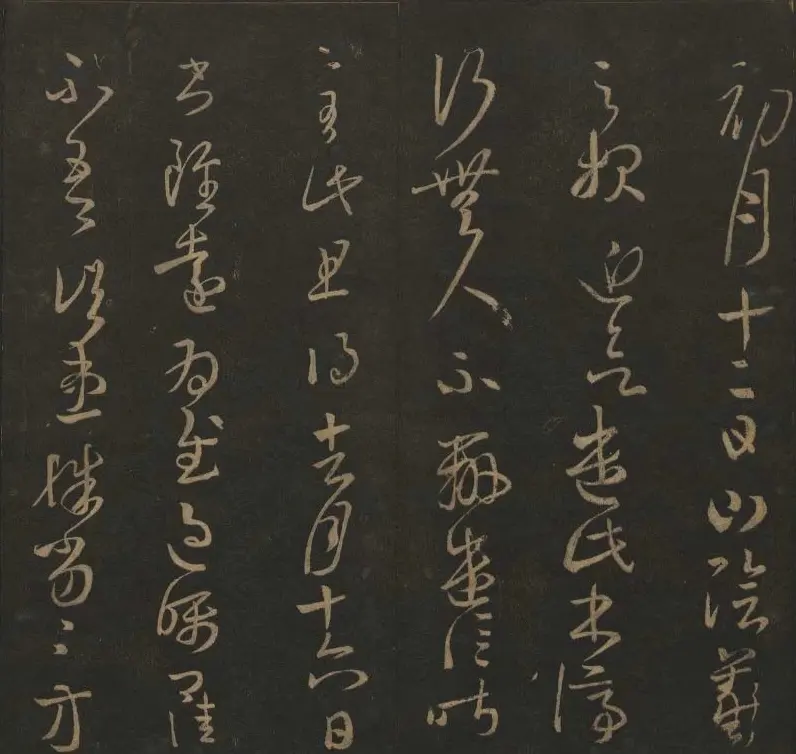 初月十二日山陰羲
之報近欲遣此書停
行無人不辦遣信昨
至此且得去月十六日
書雖遠為慰過囑卿佳
不吾諸患殊劣〻方